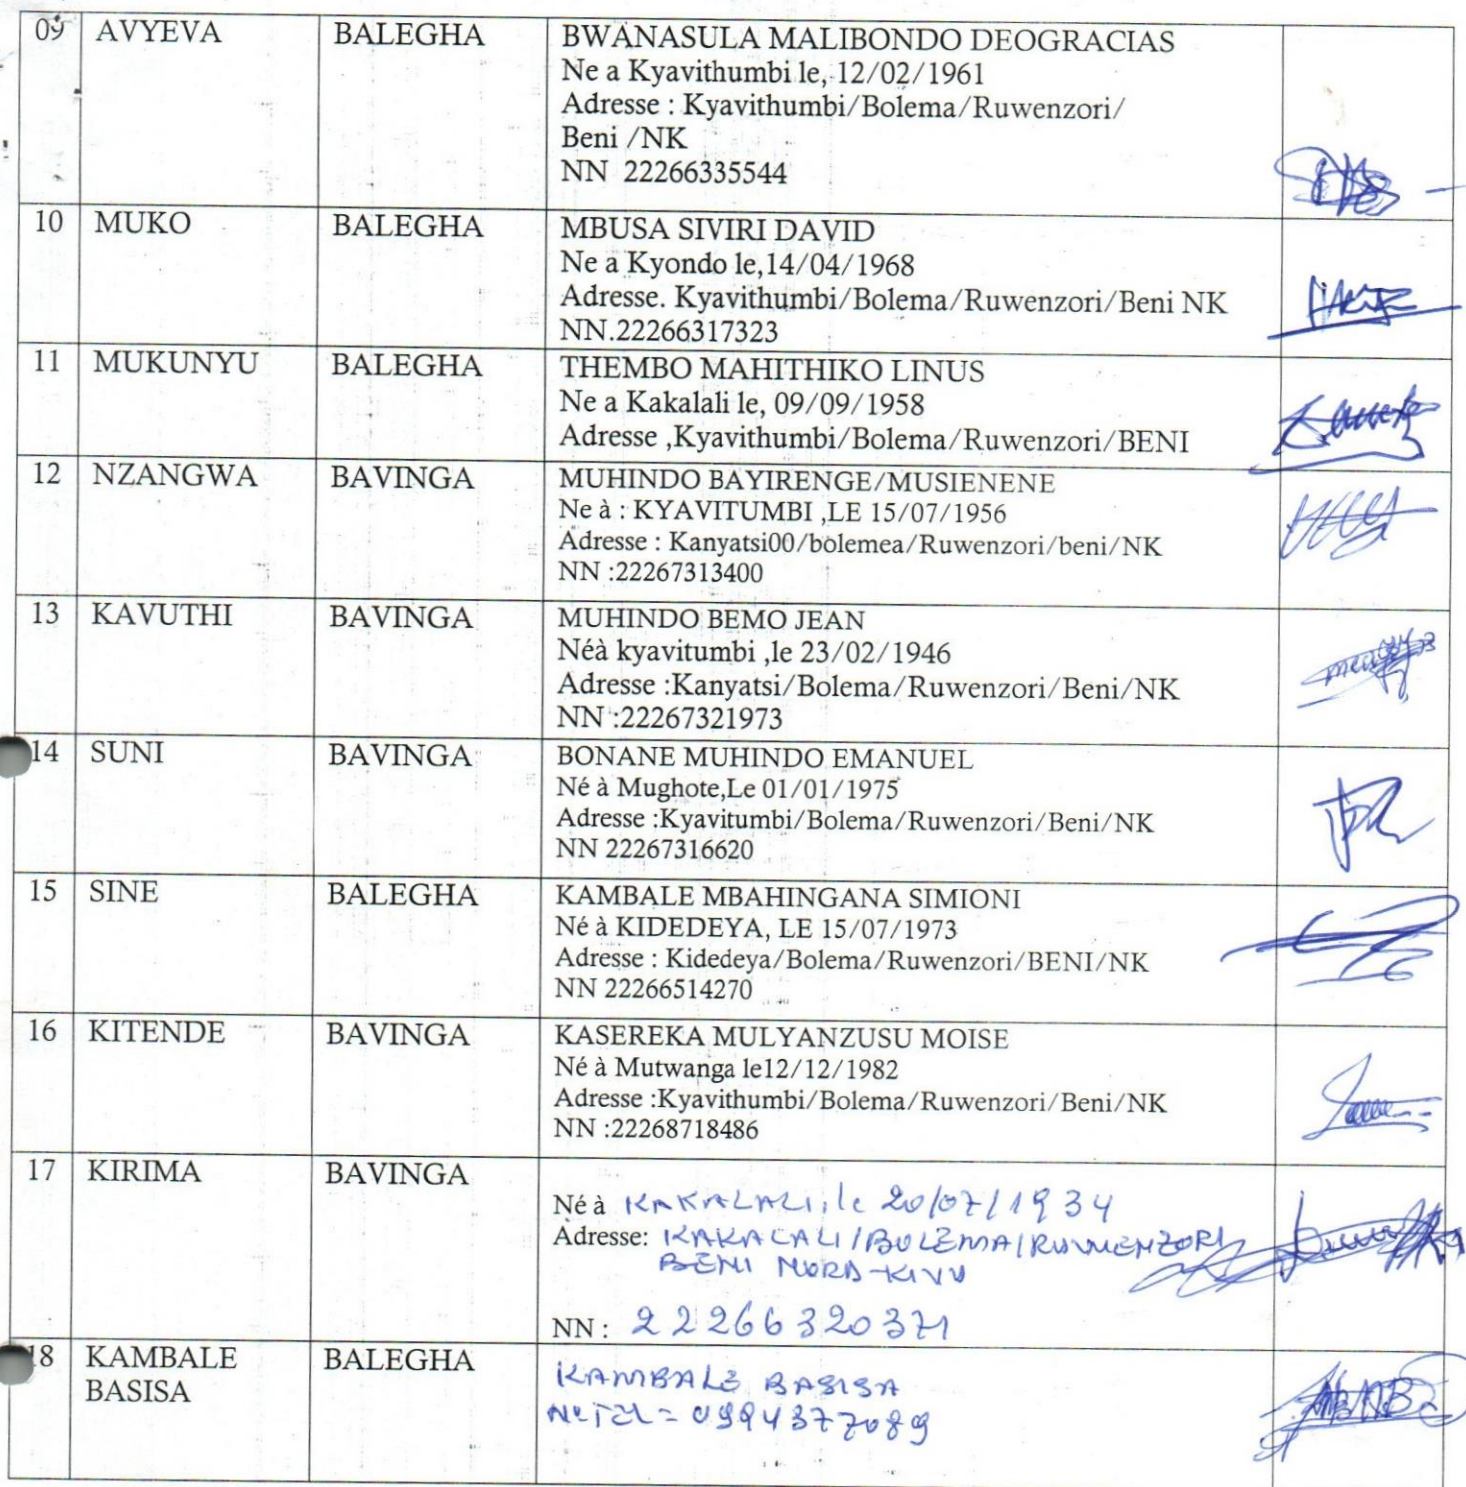 09 AVYEVA BALEGHA BWANASULA MALIBONDO DEOGRACIAS
Ne a Kyavithumbi le, 12/02/1961
Adresse : Kyavithumbi/Bolema/Ruwenzori/
Beni /NK
NN 22266335544
10 MUKO BALEGHA MBUSA SIVIRI DAVID
Ne a Kyondo le,14/04/1968
Adresse. Kyavithumbi/Bolema/Ruwenzori/Beni NK
NN.22266317323
11 MUKUNYU BALEGHA THEMBO MAHITHIKO LINUS
Ne a Kakalali le, 09/09/1958
Adresse ,Kyavithumbi/Bolema/Ruwenzori/BENI
12 NZANGWA BAVINGA MUHINDO BAYIRENGE/MUSIENENE
Ne à : KYAVITUMBI ,LE 15/07/1956
Adresse : Kanyatsi00/bolemea/Ruwenzori/beni/NK
NN :22267313400
13 KAVUTHI BAVINGA MUHINDO BEMO JEAN
Néà kyavitumbi ,le 23/02/1946
Adresse :Kanyatsi/Bolema/Ruwenzori/Beni/NK
NN :22267321973
14 SUNI BAVINGA BONANE MUHINDO EMANUEL
Né à Mughote,Le 01/01/1975
Adresse :Kyavitumbi/Bolema/Ruwenzori/Beni/NK
NN 22267316620
15 SINE BALEGHA KAMBALE MBAHINGANA SIMIONI
Né à KIDEDEYA, LE 15/07/1973
Adresse : Kidedeya/Bolema/Ruwenzori/BENI/NK
NN 22266514270
16 KITENDE BAVINGA KASEREKA MULYANZUSU MOISE
Né à Mutwanga le12/12/1982
Adresse :Kyavithumbi/Bolema/Ruwenzori/Beni/NK
NN :22268718486
17 KIRIMA BAVINGA
Né à KAKALALI, le 20/07/1934
Adresse: KAKALALI/BOLEMA/RUWENZORI
BENI NORD-KIVU
NN : 22266320371
18 KAMBALE BALEGHA KAMBALE BASISA
BASISA N°TEL = 0994377089